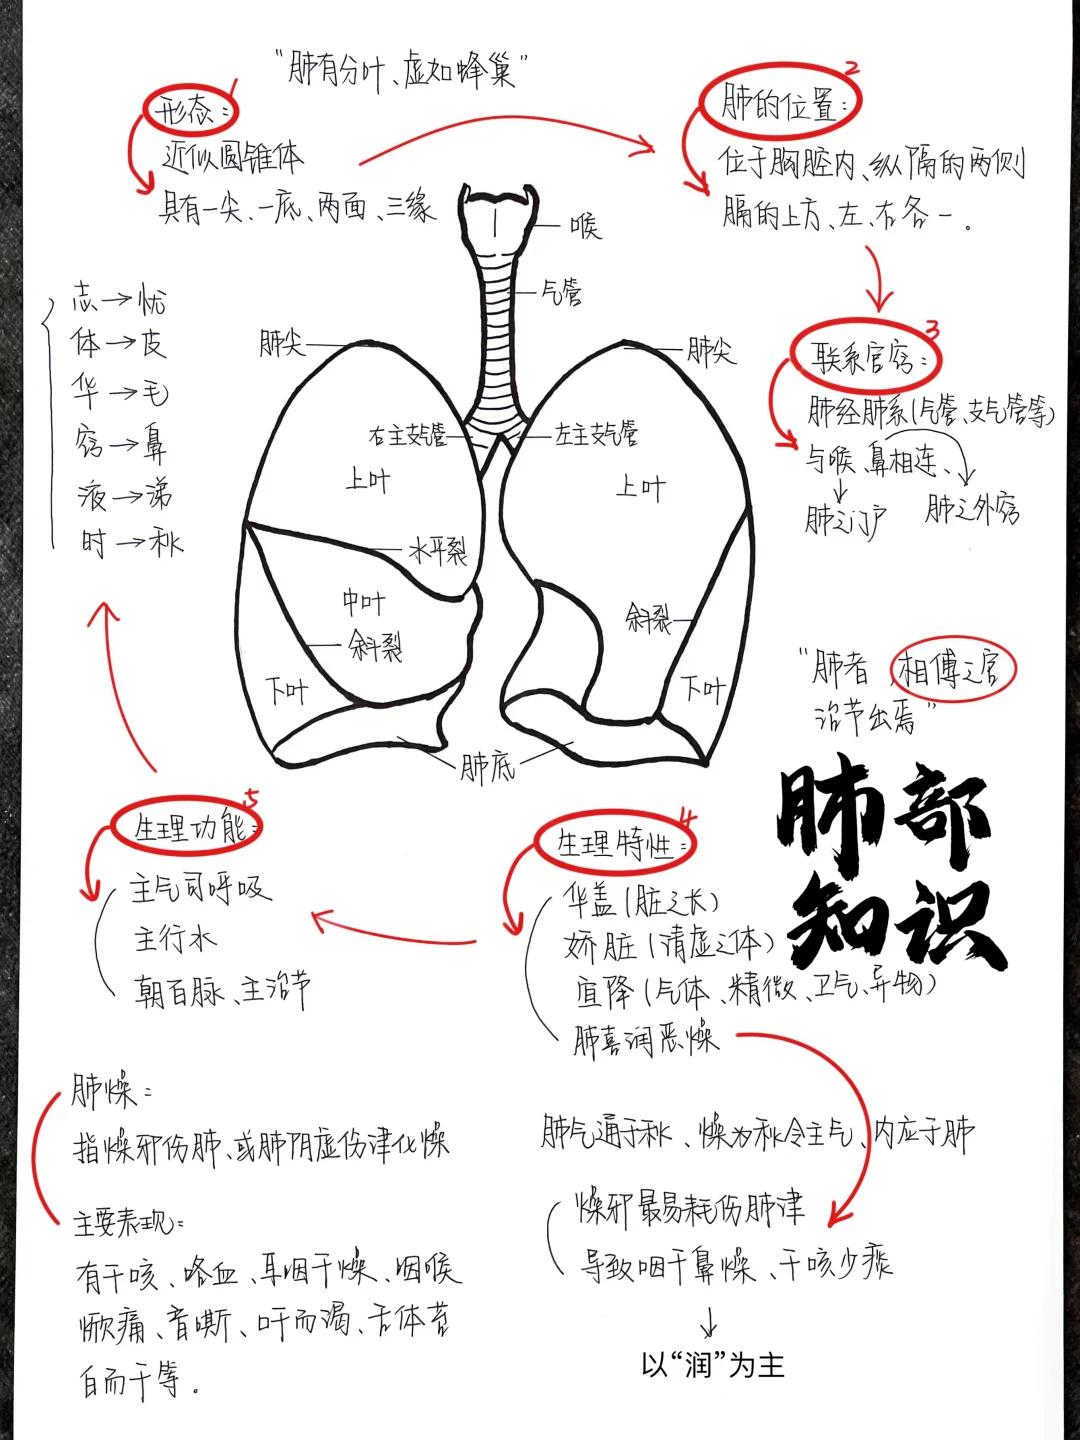 “肺有分叶、虚如蜂巢”
1
形态：
近似圆锥体
具有一尖、一底、两面、三缘
2
肺的位置：
位于胸腔内、纵隔的两侧
膈的上方、左、右各一。
喉
气管
肺尖
肺尖
右主支气管
左主支气管
上叶
上叶
水平裂
中叶
斜裂
斜裂
下叶
下叶
肺底
志→忧
体→皮
华→毛
窍→鼻
液→涕
时→秋
3
联系官窍：
肺经肺系(气管、支气管等)
与喉、鼻相连、
肺之门户
肺之外窍
“肺者，相傅之官
治节出焉”
肺部
知识
4
生理特性：
华盖(脏之长)
娇脏(清虚之体)
宣降(气体、精微、卫气、异物)
肺喜润恶燥
5
生理功能：
主气司呼吸
主行水
朝百脉、主治节
肺燥：
指燥邪伤肺、或肺阴虚伤津化燥
主要表现：
有干咳、咯血、鼻咽干燥、咽喉
痛、音嘶、口干而渴、舌体苔
白而干等。
肺气通于秋、燥为秋令主气、内应于肺
燥邪最易耗伤肺津
导致咽干鼻燥、干咳少痰
↓
以“润”为主